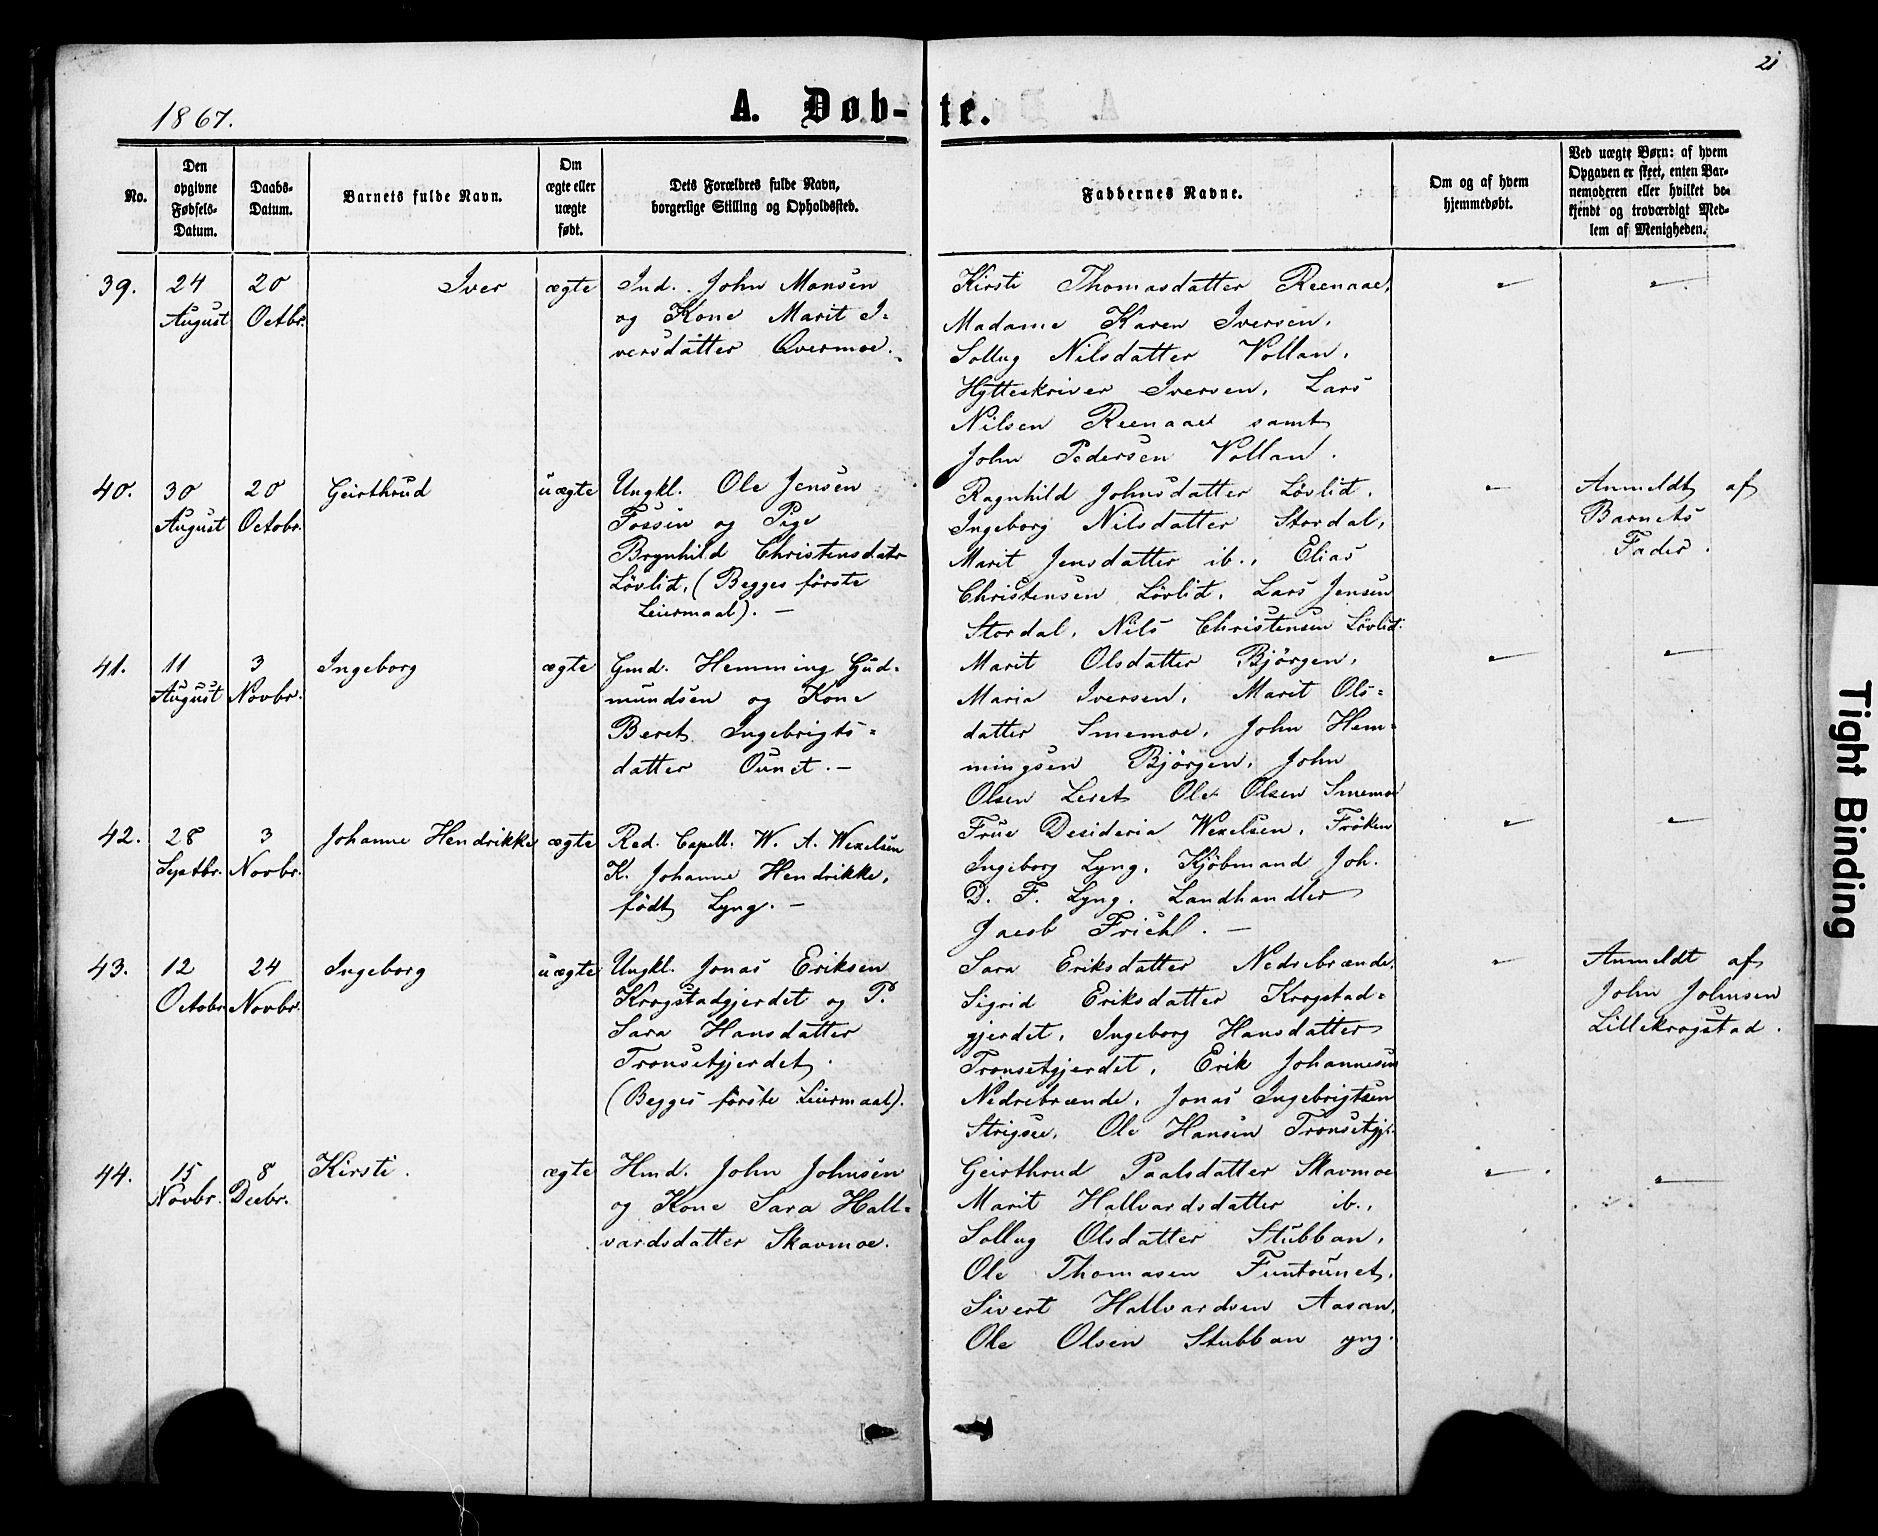 21
1867.
A. Døb-te.
No.
Den
opgivne
Fødsels-
Datum.
Daabs-
Datum.
Barnets fulde Navn.
Om
ægte eller
uægte
født.
Dets Forældres fulde Navn,
borgerlige Stilling og Opholdssted.
Faddernes Navne.
Om og af hvem
hjemmedøbt.
Ved uægte Børn: af hvem
Opgaven er skeet, enten Bar-
nemoderen eller hvilket be-
kjendt og troværdigt Med-
lem af Menigheden.
39.
24
August
20
Octbr.
Iver
ægte
Ind. John Monsen
og Kone Marit I-
versdatter Qvermoe.
Kirsti Thomasdatter Reenaae,
Madame Karen Iversen,
Sollug Nilsdatter Vollan,
Hytteskriver Iversen, Lars
Nilsen Reenaae samt
John Pedersen Vollan.
40.
30
August
20
Octobr.
Geirthrud
uægte
Ungkl. Ole Jensen
Fossen og Pige
Brynhild Christensdatr
Lövlid, (Begges første
Leiermaal). –
Ragnhild Johnsdatter Lövlid,
Ingeborg Nilsdatter Stordal,
Marit Jensdatter ib., Elias
Christensen Lövlid, Lars Jensen
Stordal, Nils Christensen Lövlid.
Anmeldt af
Barnets
Fader.
41.
11
August
3
Novbr.
Ingeborg
ægte
Gmd. Hemming Gud-
mundsen og Kone
Beret Ingebrigts-
datter Ounet. –
Marit Olsdatter Bjørgen,
Maria Iversen, Marit Ols-
datter Smemoe, John Hem-
mingsen Bjørgen, John
Olsen Leret Ole Olsen Smemoe
42.
28
Septbr.
3
Novbr.
Johanne Hendrikke
ægte
Red. Capell. W. A. Wexelsen
K. Johanne Hendrikke,
født Lyng. –
Frue Desideria Wexelsen, Frøken
Ingeborg Lyng, Kjøbmand Joh.
D. F. Lyng, Landhandler
Jacob Frichl. –
43.
12
Octobr
24
Novbr.
Ingeborg
uægte
Ungkl. Jonas Eriksen
Krogstadgjerdet og P.
Sara Hansdatter
Tronsetgjerdet.
(Begges første Leiermaal).
Sara Eriksdatter Nedrebrænde,
Sigrid Eriksdatter Krogstad-
gjerdet, Ingeborg Hansdatter
Tronsetgjerdet, Erik Johannesen
Nedrebrænde, Jonas Ingebrigtsen
Strigsee, Ole Hansen Tronsetgj.
Anmeldt af
John Johnsen
Lillekrogstad.
44.
15
Novbr.
8
Decbr.
Kirsti.
ægte
Hmd. John Johnsen
og Kone Sara Hall-
vardsdatter Skavmoe.
Geirthrud Paalsdatter Skavmoe
Marit Hallvardsdatter ib.,
Sollug Olsdatter Stubban,
Ole Thomasen Funtounet,
Sivert Hallvardsen Aasan,
Ole Olsen Stubban yng.
Tight Binding